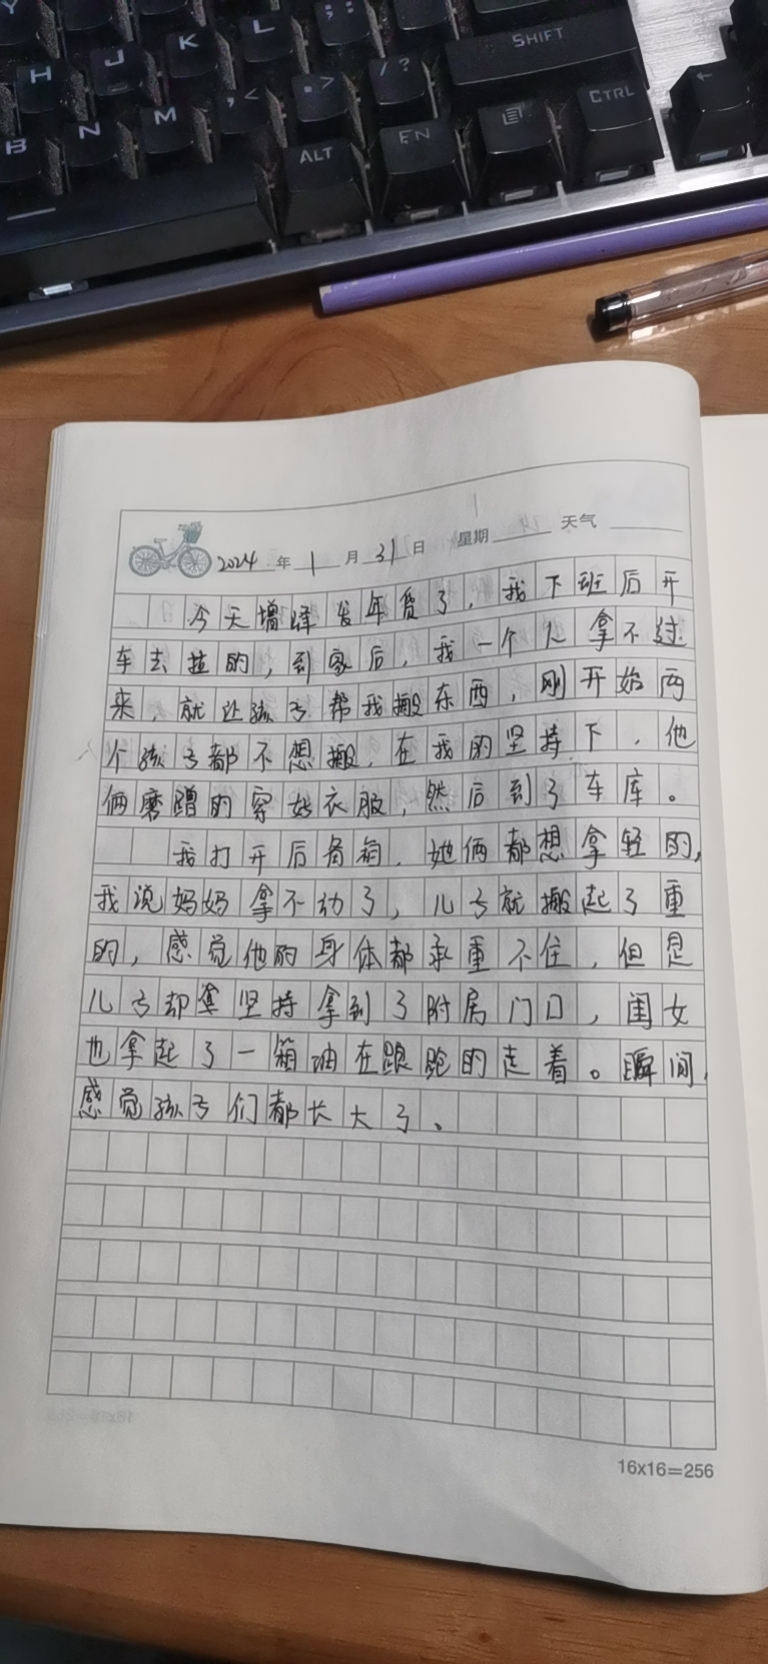 Y
H J K L ; : SHIFT
B N M , < . > / ? CTRL ←
ALT FN
2024年1月31日 星期 天气
今天增译发年货了，我下班后开
车去拉的，到家后，我一个人拿不过
来，就让孩子帮我搬东西，刚开始两
个孩子都不想搬，在我的坚持下，他
俩磨蹭的穿好衣服，然后到了车库。
我打开后备箱，她俩都想拿轻的，
我说妈妈拿不动了，儿子就搬起了重
的，感觉他的身体都承重不住，但是
儿子却坚持拿到了附房门口，闺女
也拿起了一箱油在踉跄的走着。瞬间，
感觉孩子们都长大了。
16x16=256